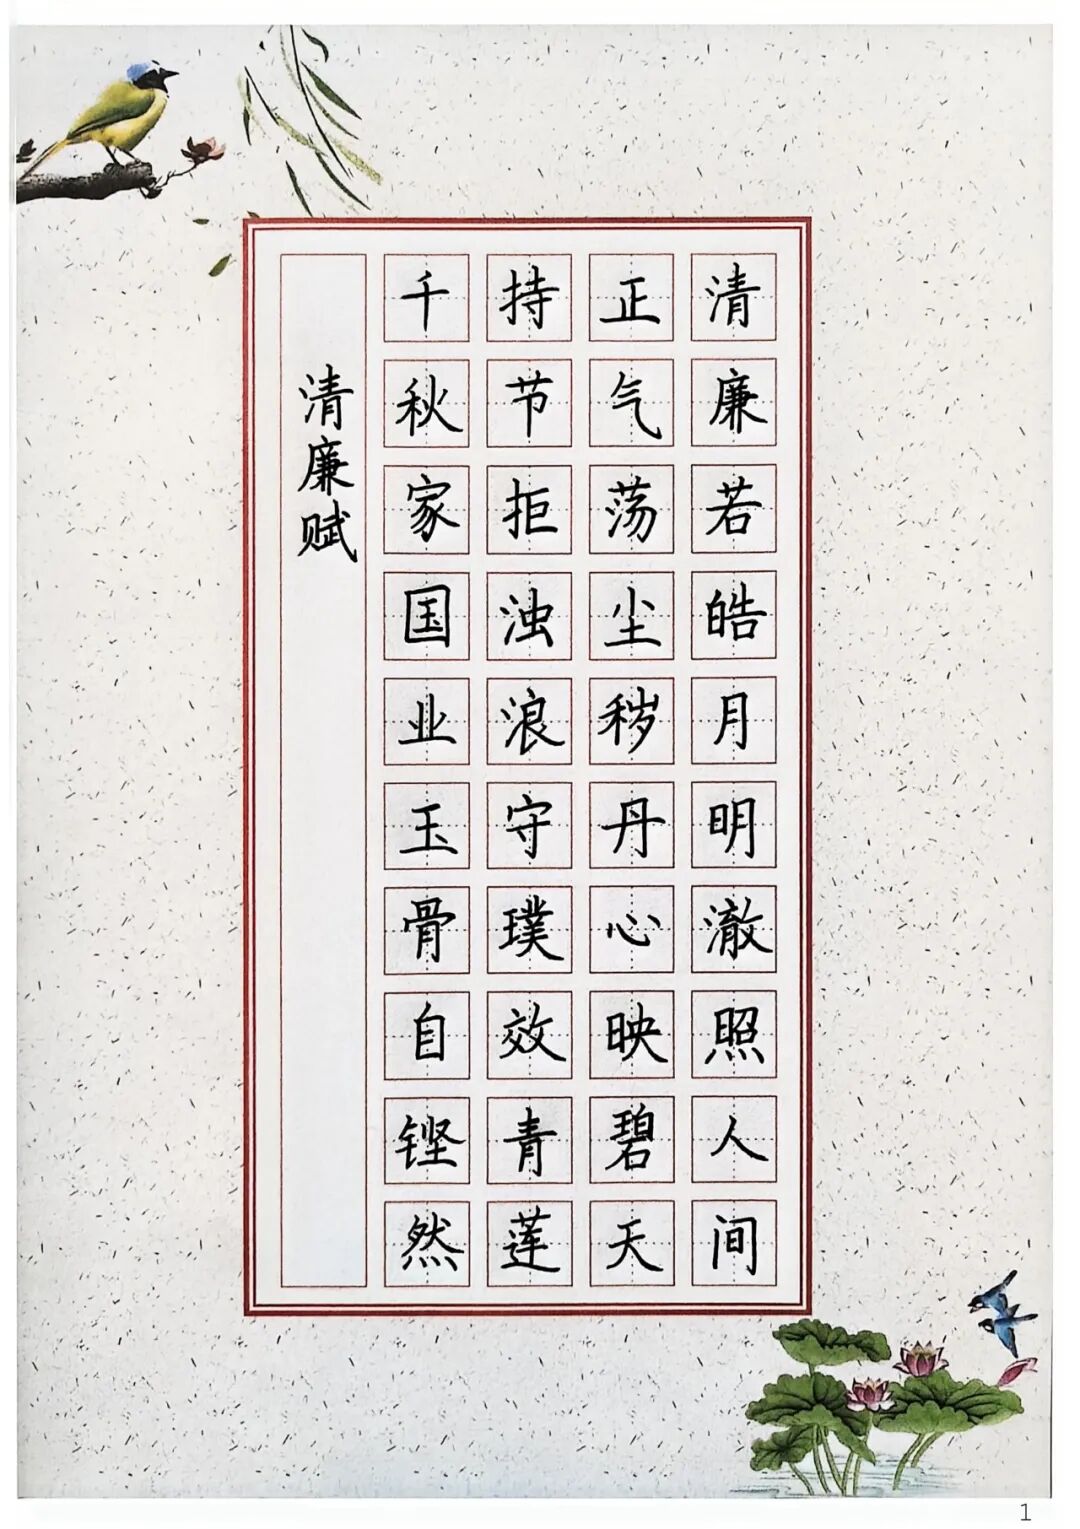 清廉若皓月明澈照人间
正气荡尘秽丹心映碧天
持节拒浊浪守璞效青莲
千秋家国业玉骨自铿然
清廉赋
1